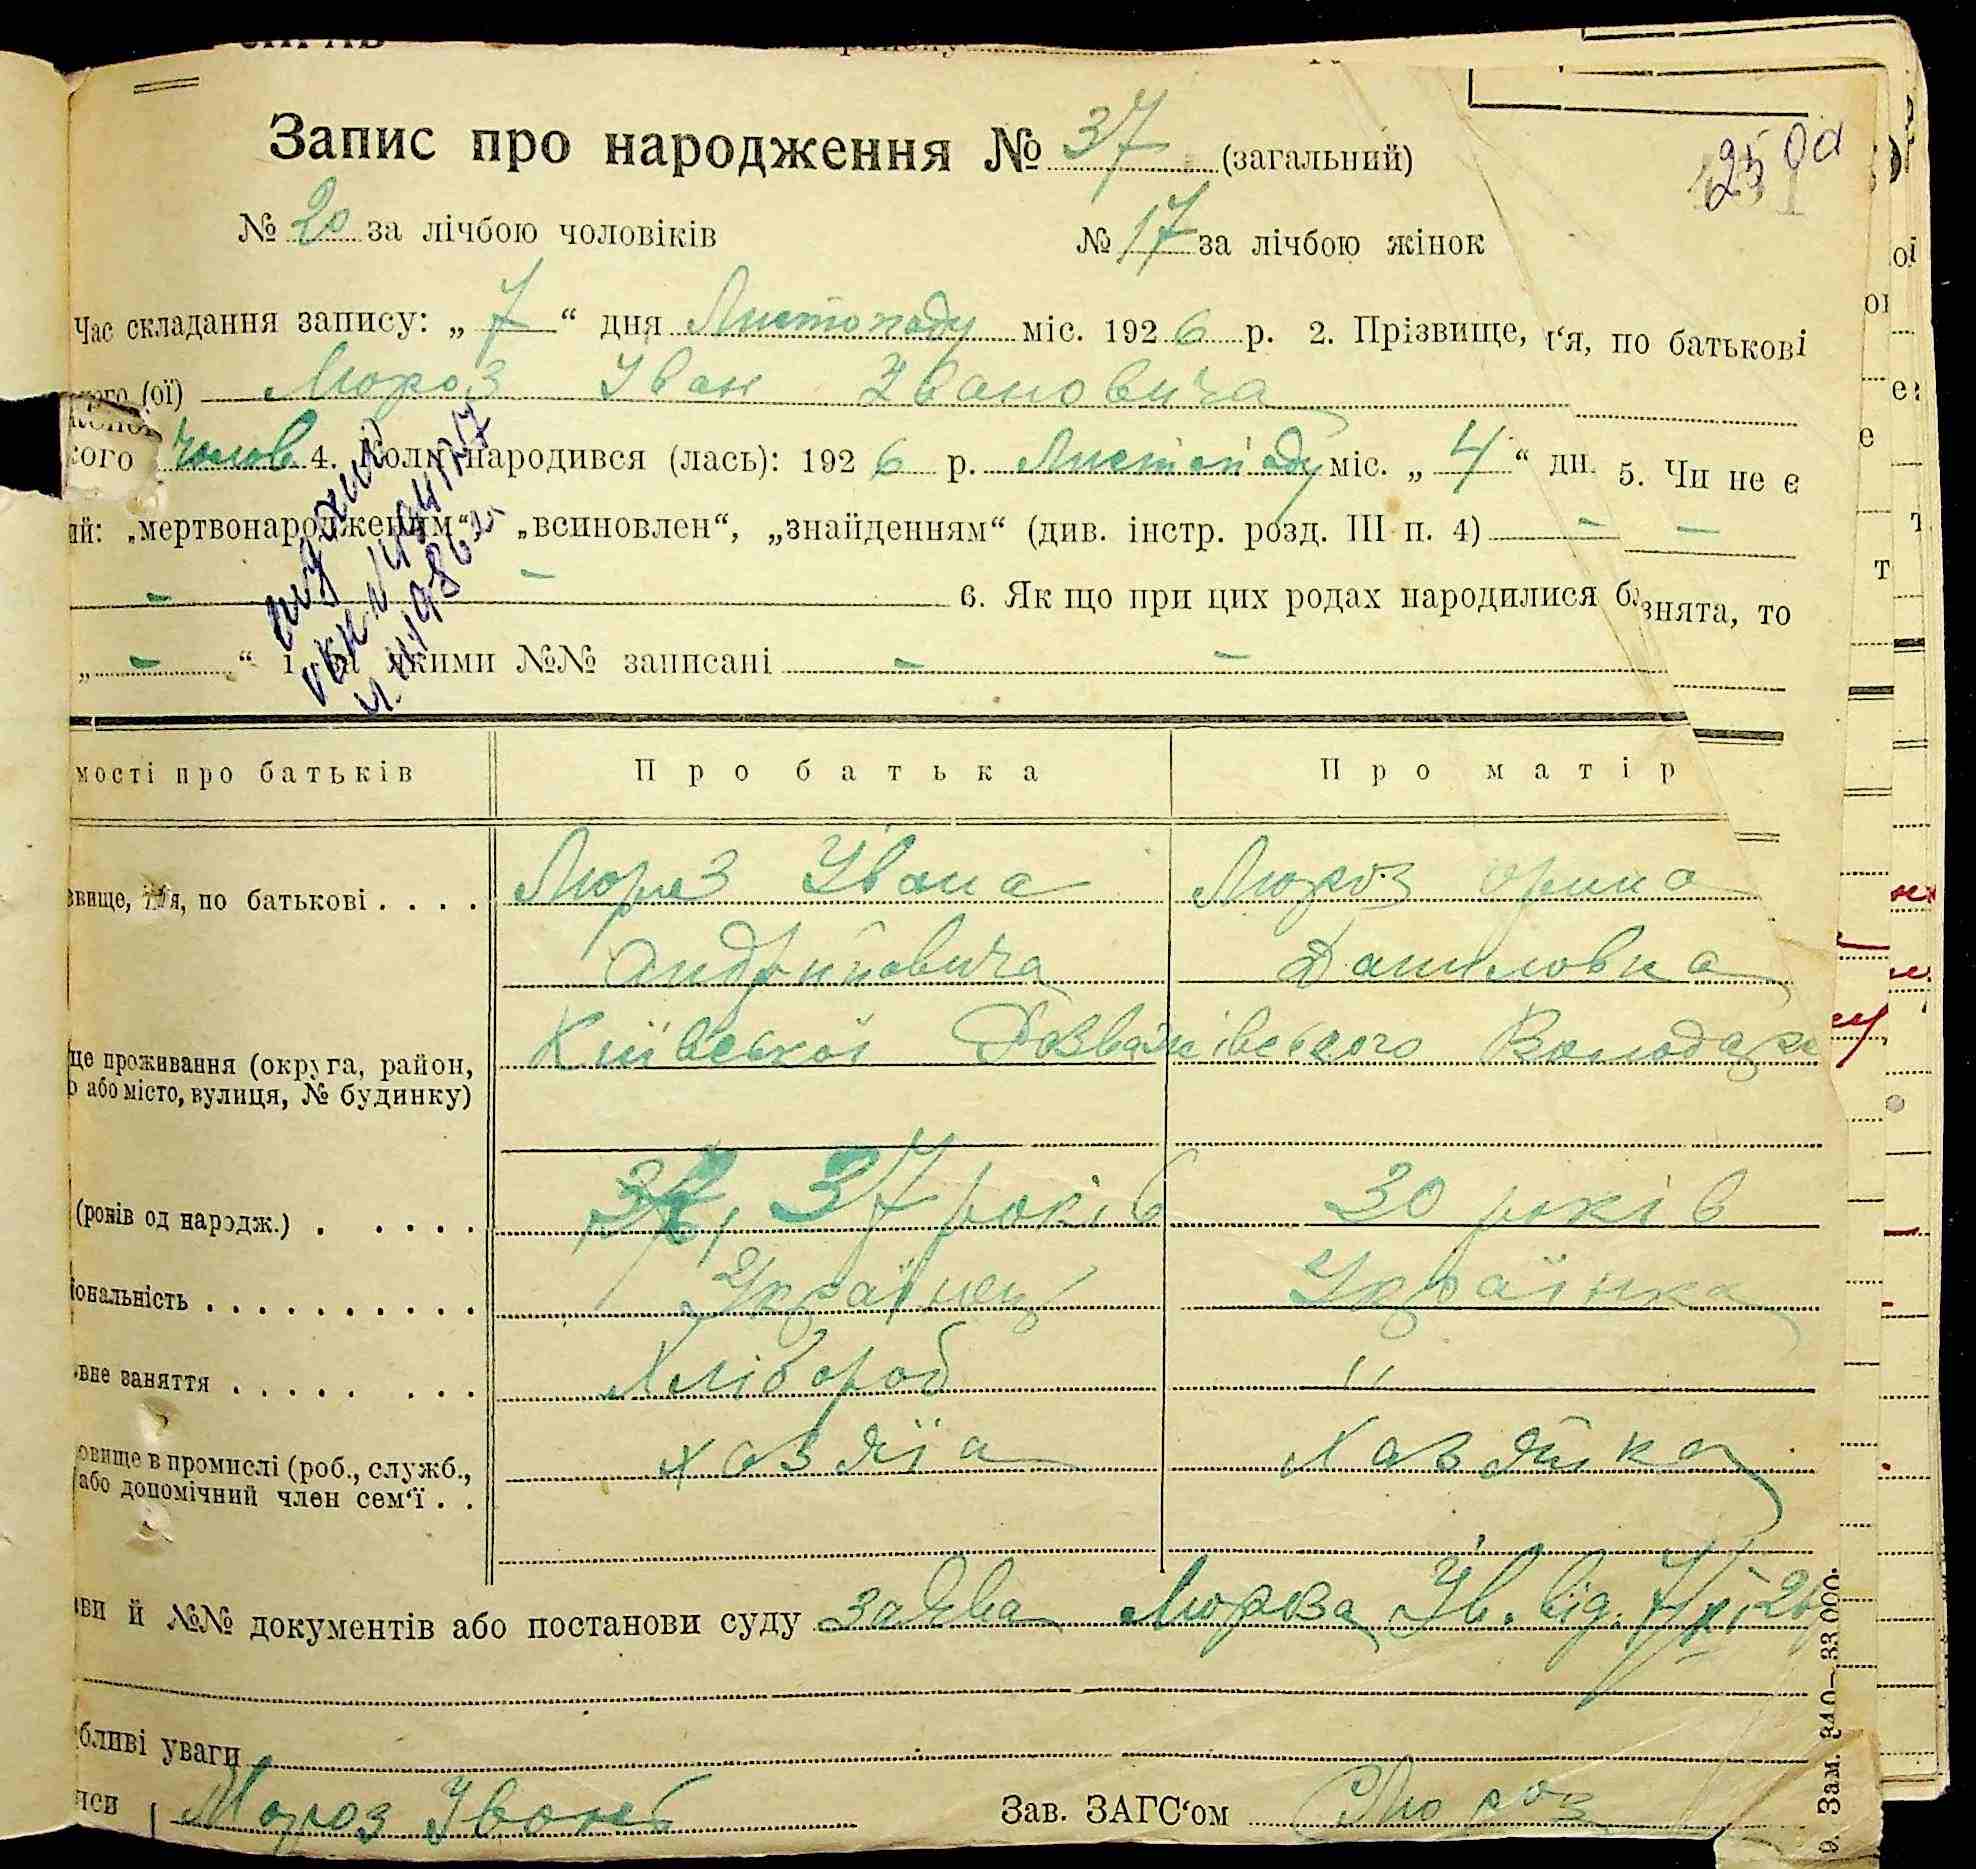 Запис про народження № 37 (загальний)
№ 20 за лічбою чоловіків № 17 за лічбою жінок
Час складання запису: „ 7 “ дня Листопаду міс. 192 6 р. 2. Прізвище, і‘я, по батькові
(ої) Мороз Іван Івановича
кого Чолов 4. Коли народився (лась): 192 6 р. Листопаду міс. „ 4 “ дн. 5. Чи не є
ий: „мертвонародженим“ „всиновлен“, „знайденням“ (див. інстр. розд. III п. 4) – –
– – 6. Як що при цих родах народилися близнята, то
„ – “ і за якими №№ записані – –
мості про батьків Про батька Про матір
звище, ім‘я, по батькові . . . . Мороз Івана Мороз Орина
Андрійовича Даниловна
Київської Розважівського Володарк
це проживання (округа, район,
о або місто, вулиця, № будинку)
(років од народж.) . . . . . 37 років 30 років
іональність . . . . . . . . . . . Українец Українка
вне заняття . . . . . . . . Хлібороб "
овище в промислі (роб., служб., хазяїа Хазяйка
або допомічний член сем‘ї . .
ви й №№ документів або постанови суду заява Мороза Ів. від. 7/XI 26
бливі уваги
иси Мороз Іванъ Зав. ЗАГС‘ом Мороз
9. Зам. 340—33.000.